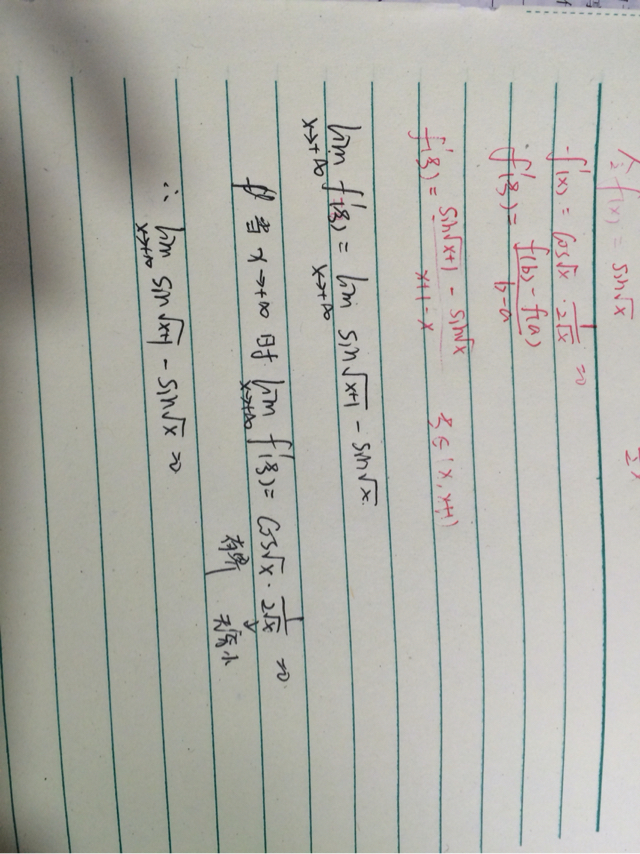 令f(x) = sin√x
f'(x) = cos√x · 1/(2√x) = 0
f'(ξ) = (f(b) - f(a))/(b-a)
f'(ξ) = (sin√(x+1) - sin√x)/(x+1-x) ξ∈(x, x+1)
lim x→+∞ f'(ξ) = lim x→+∞ sin√(x+1) - sin√x.
当 x→+∞ 时 lim x→+∞ f'(ξ) = cos√x · 1/(2√x) = 0
有界 无穷小
∴ lim x→+∞ sin√(x+1) - sin√x = 0